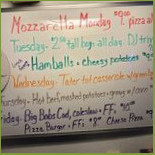 Mozzarella Monday $9.00 pizza a
Tuesday: $2.00 tall boys all day. DJ trivi
Hamballs + cheesy potatoes
Wednesday: Tater tot casserole w/
Thursday - Hot beef, mashed potatoes + gravy w/ corn
Friday: Big Bobs Cod, coleslaw + FFs $10
Pizza Burger + FFs $8 Cheese Pizza